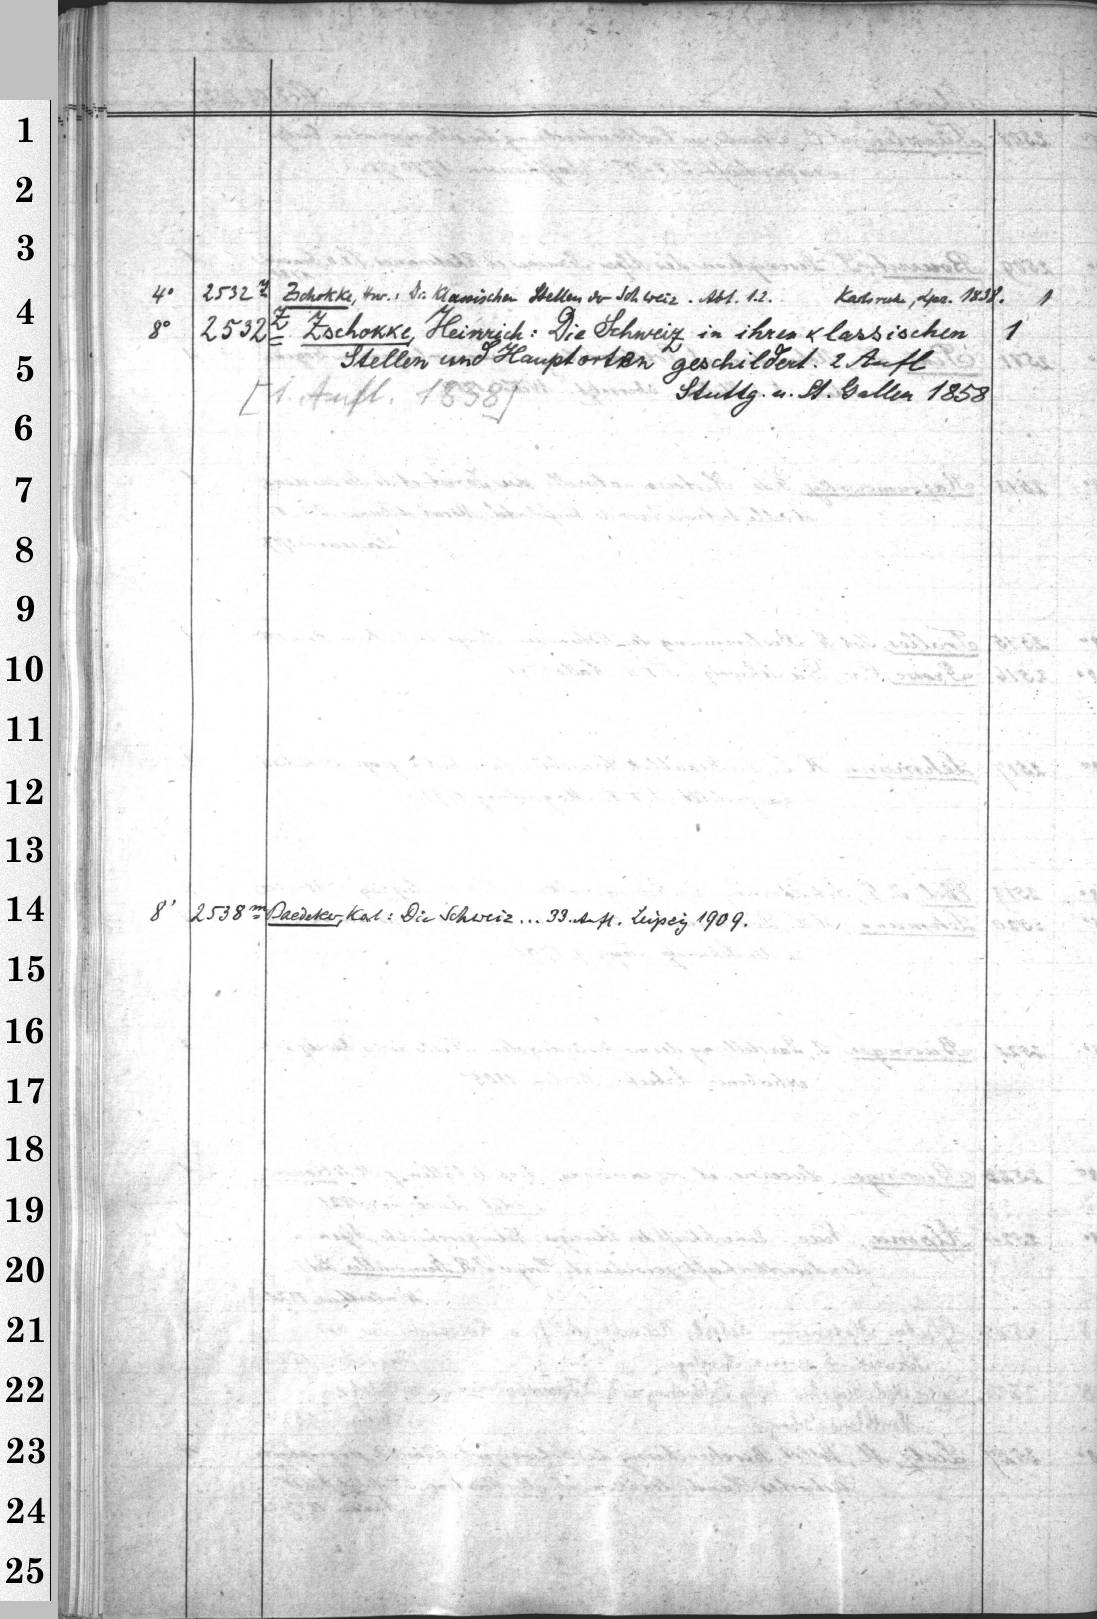 1
2
3
4° 2532 z Zschokke, Hnr.: Die klassischen Stellen der Schweiz. Abt. 1.2. Karlsruhe, Lpz. 1838. 1
4
8° 2532 Z Zschokke, Heinrich: Die Schweiz in ihren klassischen 1
5
Stellen und Hauptorten geschildert. 2 Aufl
[1. Aufl. 1838] Stuttg. u. St. Gallen 1858
6
7
8
9
10
11
12
13
14
8° 2538 m Baedeker, Karl: Die Schweiz... 33. Aufl. Leipzig 1909.
15
16
17
18
19
20
21
22
23
24
25